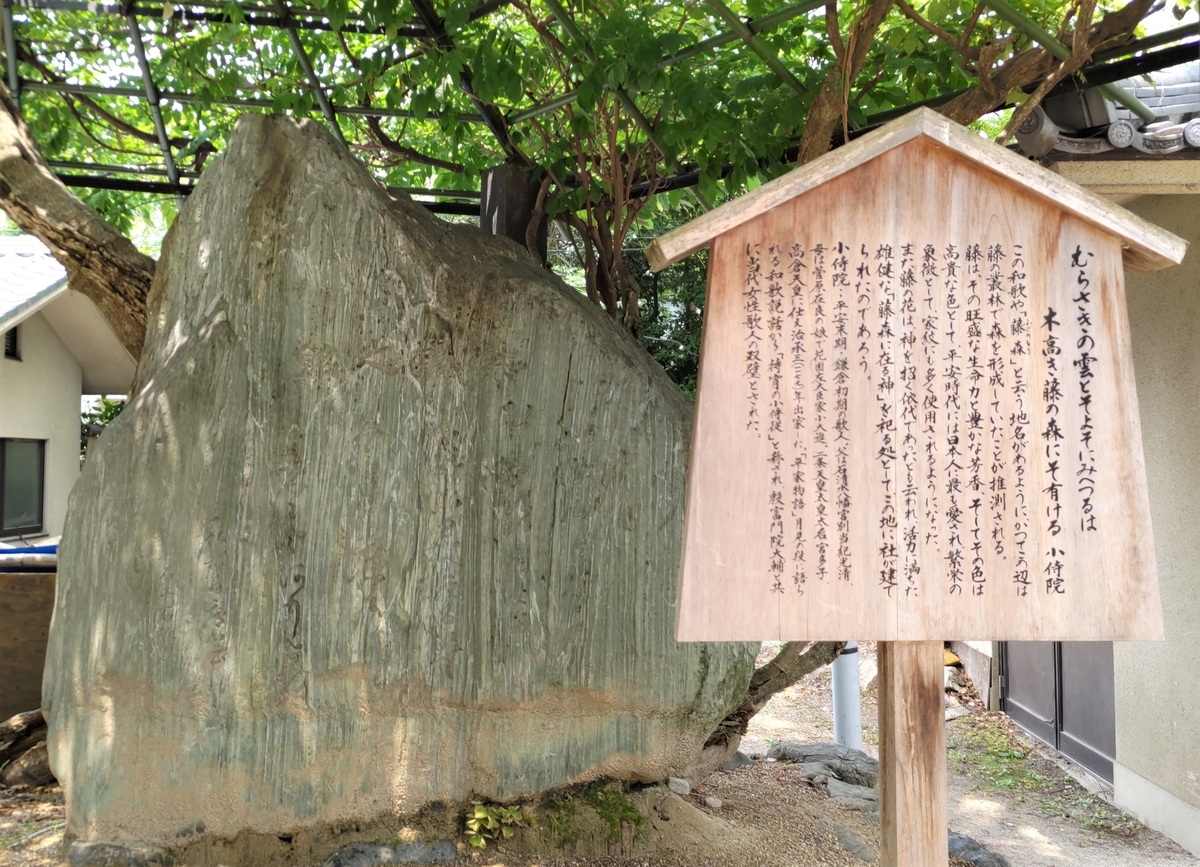 むらさきの雲とそよそにみへつるは
木高き藤の森にそ有ける 小侍院
この和歌や「藤森」と云う地名があるようにかつてこの辺は
藤の叢林で森を形成していたことが推測される。
藤は、その旺盛な生命力と豊かな芳香 そしてその色は
高貴な色として、平安時代には日本人に最も愛され繁栄の
象徴として家紋にも多く使用されるようになった。
また藤の花は神を招く依代であったとも云われ、活力に満ちた
雄健な「藤森に在る神」を祀る処としてこの地に社が建て
られたのであろう。
小侍院…平安末期、鎌倉初期の歌人、父は石清水八幡宮別当紀光清
母は菅原在良の娘で花園左大臣家小大進、二条天皇太皇太后宮多子
高倉天皇に仕え治承三(一一七九)年出家した。「平家物語」月見の段に語ら
れる和歌説話から「待宵の小侍従」と称され、殷富門院大輔と共
に当代女性歌人の双璧とされた。